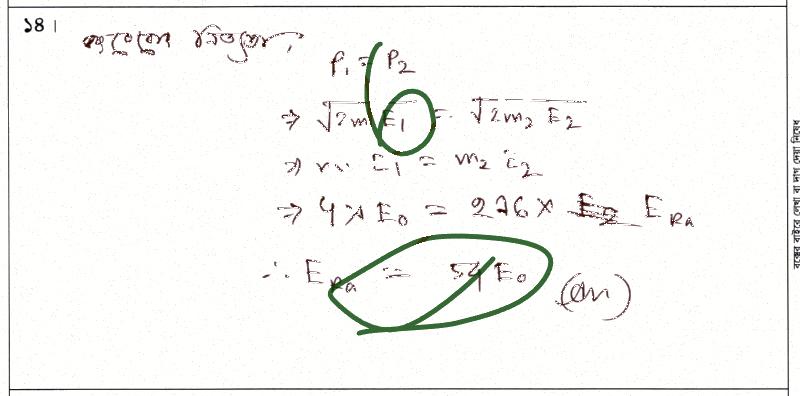 ১৪।
P₁ = P₂
⇒ √2m₁E₁ = √2m₂ E₂
⇒ m₁ E₁ = m₂ E₂
⇒ 4 × E₀ = 226 × E_Ra
∴ E_Ra = 54 E₀ (Ans)
বক্সের বাইরে লেখা বা দাগ দেয়া নিষেধ